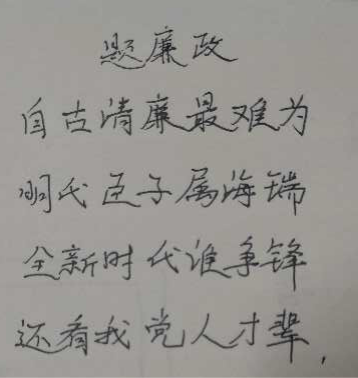 题廉政
自古清廉最难为
明代臣子属海瑞
全新时代谁争锋
还看我党人才辈.